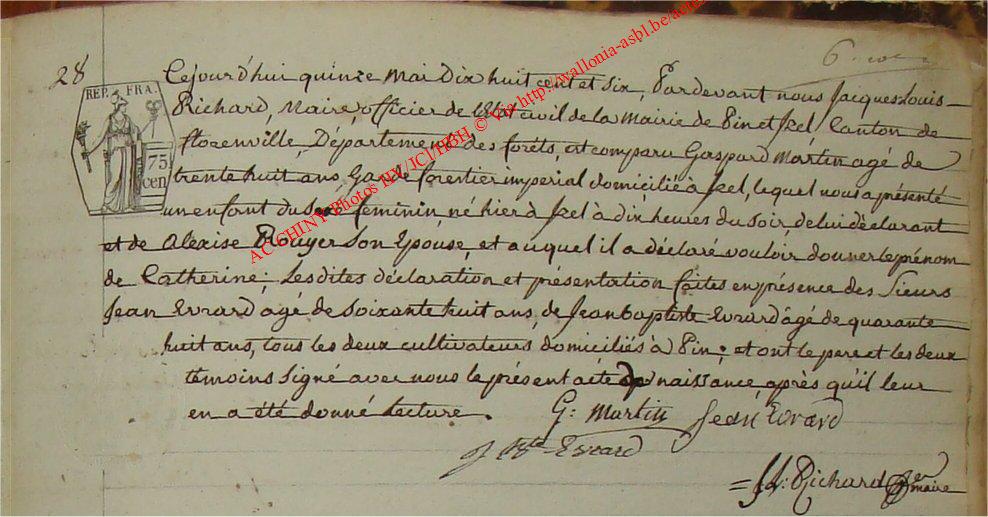 28
REP. FRA.
75
cen
Cejourd'hui quinze Mai Dix huit cent et six, Pardevant nous Jacques Louis
Richard, Maire, officier de l'Etat civil de la Mairie de Pin et Izel, Canton de
florenville, Département des forêts, est comparu Gaspard Martin agé de
trente huit ans, Garde forestier imperial domicilié à Izel, lequel nous a présenté
un enfant du Sexe feminin né hier à Izel à dix heures du soir, de lui déclarant
et de Alexise Rouyer Son Epouse, et auquel il a déclaré vouloir donner le prénom
de Catherine; Les dites déclaration et présentation faites en présence des Sieurs
Jean Evrard agé de Soixante huit ans, de Jean baptiste Evrard agé de quarante
huit ans, tous les deux cultivateurs domiciliés à Pin; et ont le pere et les deux
témoins Signé avec nous le présent acte de naissance, après qu'il leur
en a été donné Lecture.
G: Martin Jean Evrard
J Bte Evrard
= JL: Richard
maire
AC CHINY Photos NV/JCJ/HBH © via http://wallonia-asbl.be/actes